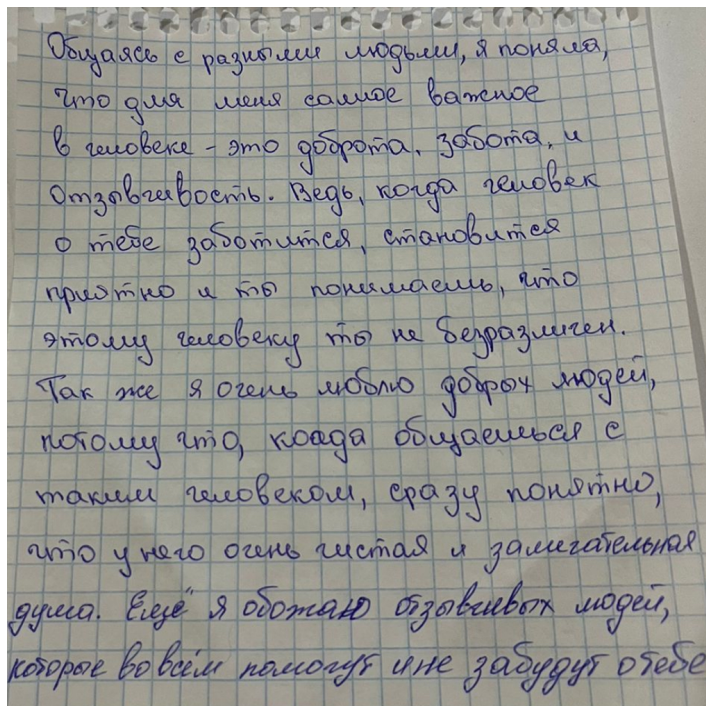 Общаясь с разными людьми, я поняла,
что для меня самое важное
в человеке - это доброта, забота, и
отзывчивость. Ведь, когда человек
о тебе заботится, становится
приятно и ты понимаешь, что
этому человеку ты не безразличен.
Так же я очень люблю добрых людей,
потому что, когда общаешься с
таким человеком, сразу понятно,
что у него очень чистая и замечательная
душа. Ещё я обожаю отзывчивых людей,
которые во всём помогут и не забудут о тебе